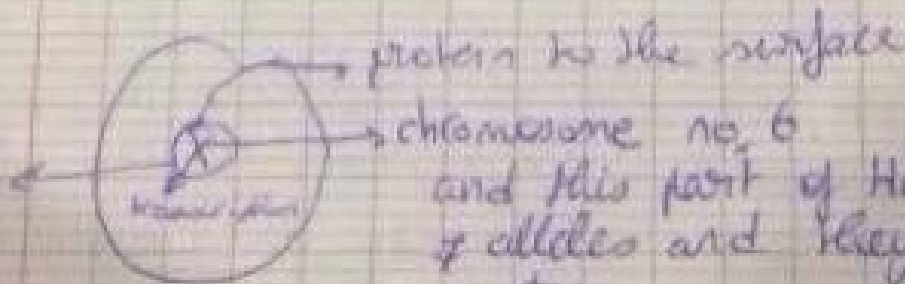 protein to the surface
chromosome no. 6
transcription
and this part of
of alleles and they